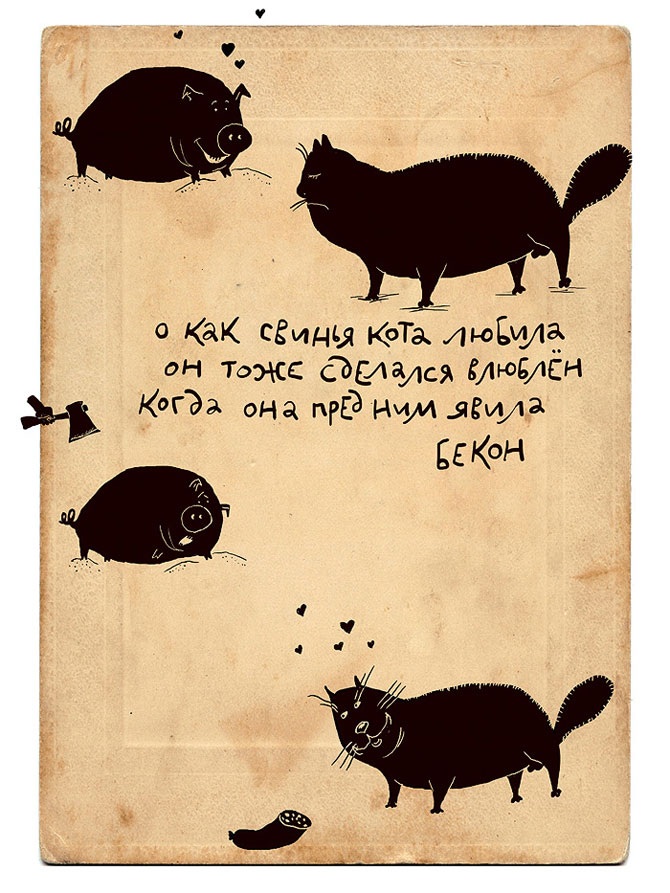 о как свинья кота любила
он тоже сделался влюблён
когда она пред ним явила
бекон